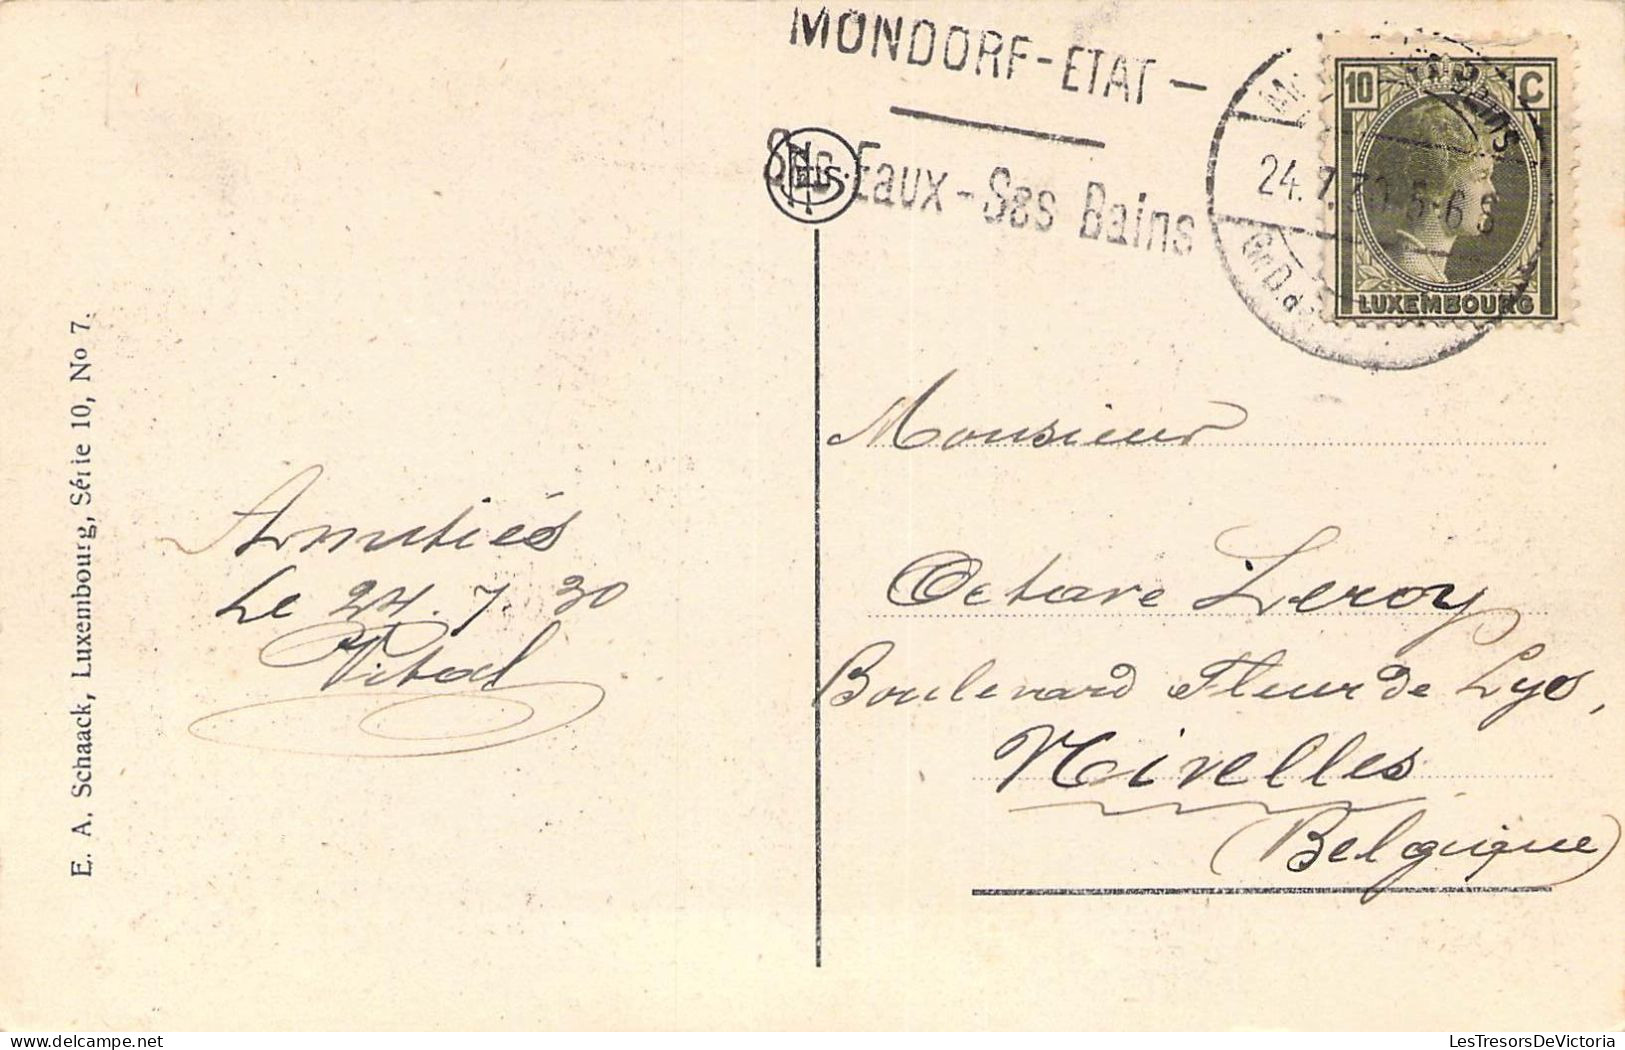 MONDORF-ETAT —
Ses Eaux - Ses Bains
NELS
10 C
LUXEMBOURG
Bains
24.7.30. 5-6 S
Gr.D. d
Monsieur
Octave Leroy
Boulevard Fleur de Lys,
Nivelles
(Belgique)
Amitiés
Le 24. 7. 30
Vital
E. A. Schaack, Luxembourg, Série 10, No 7.
LesTresorsDeVictoria